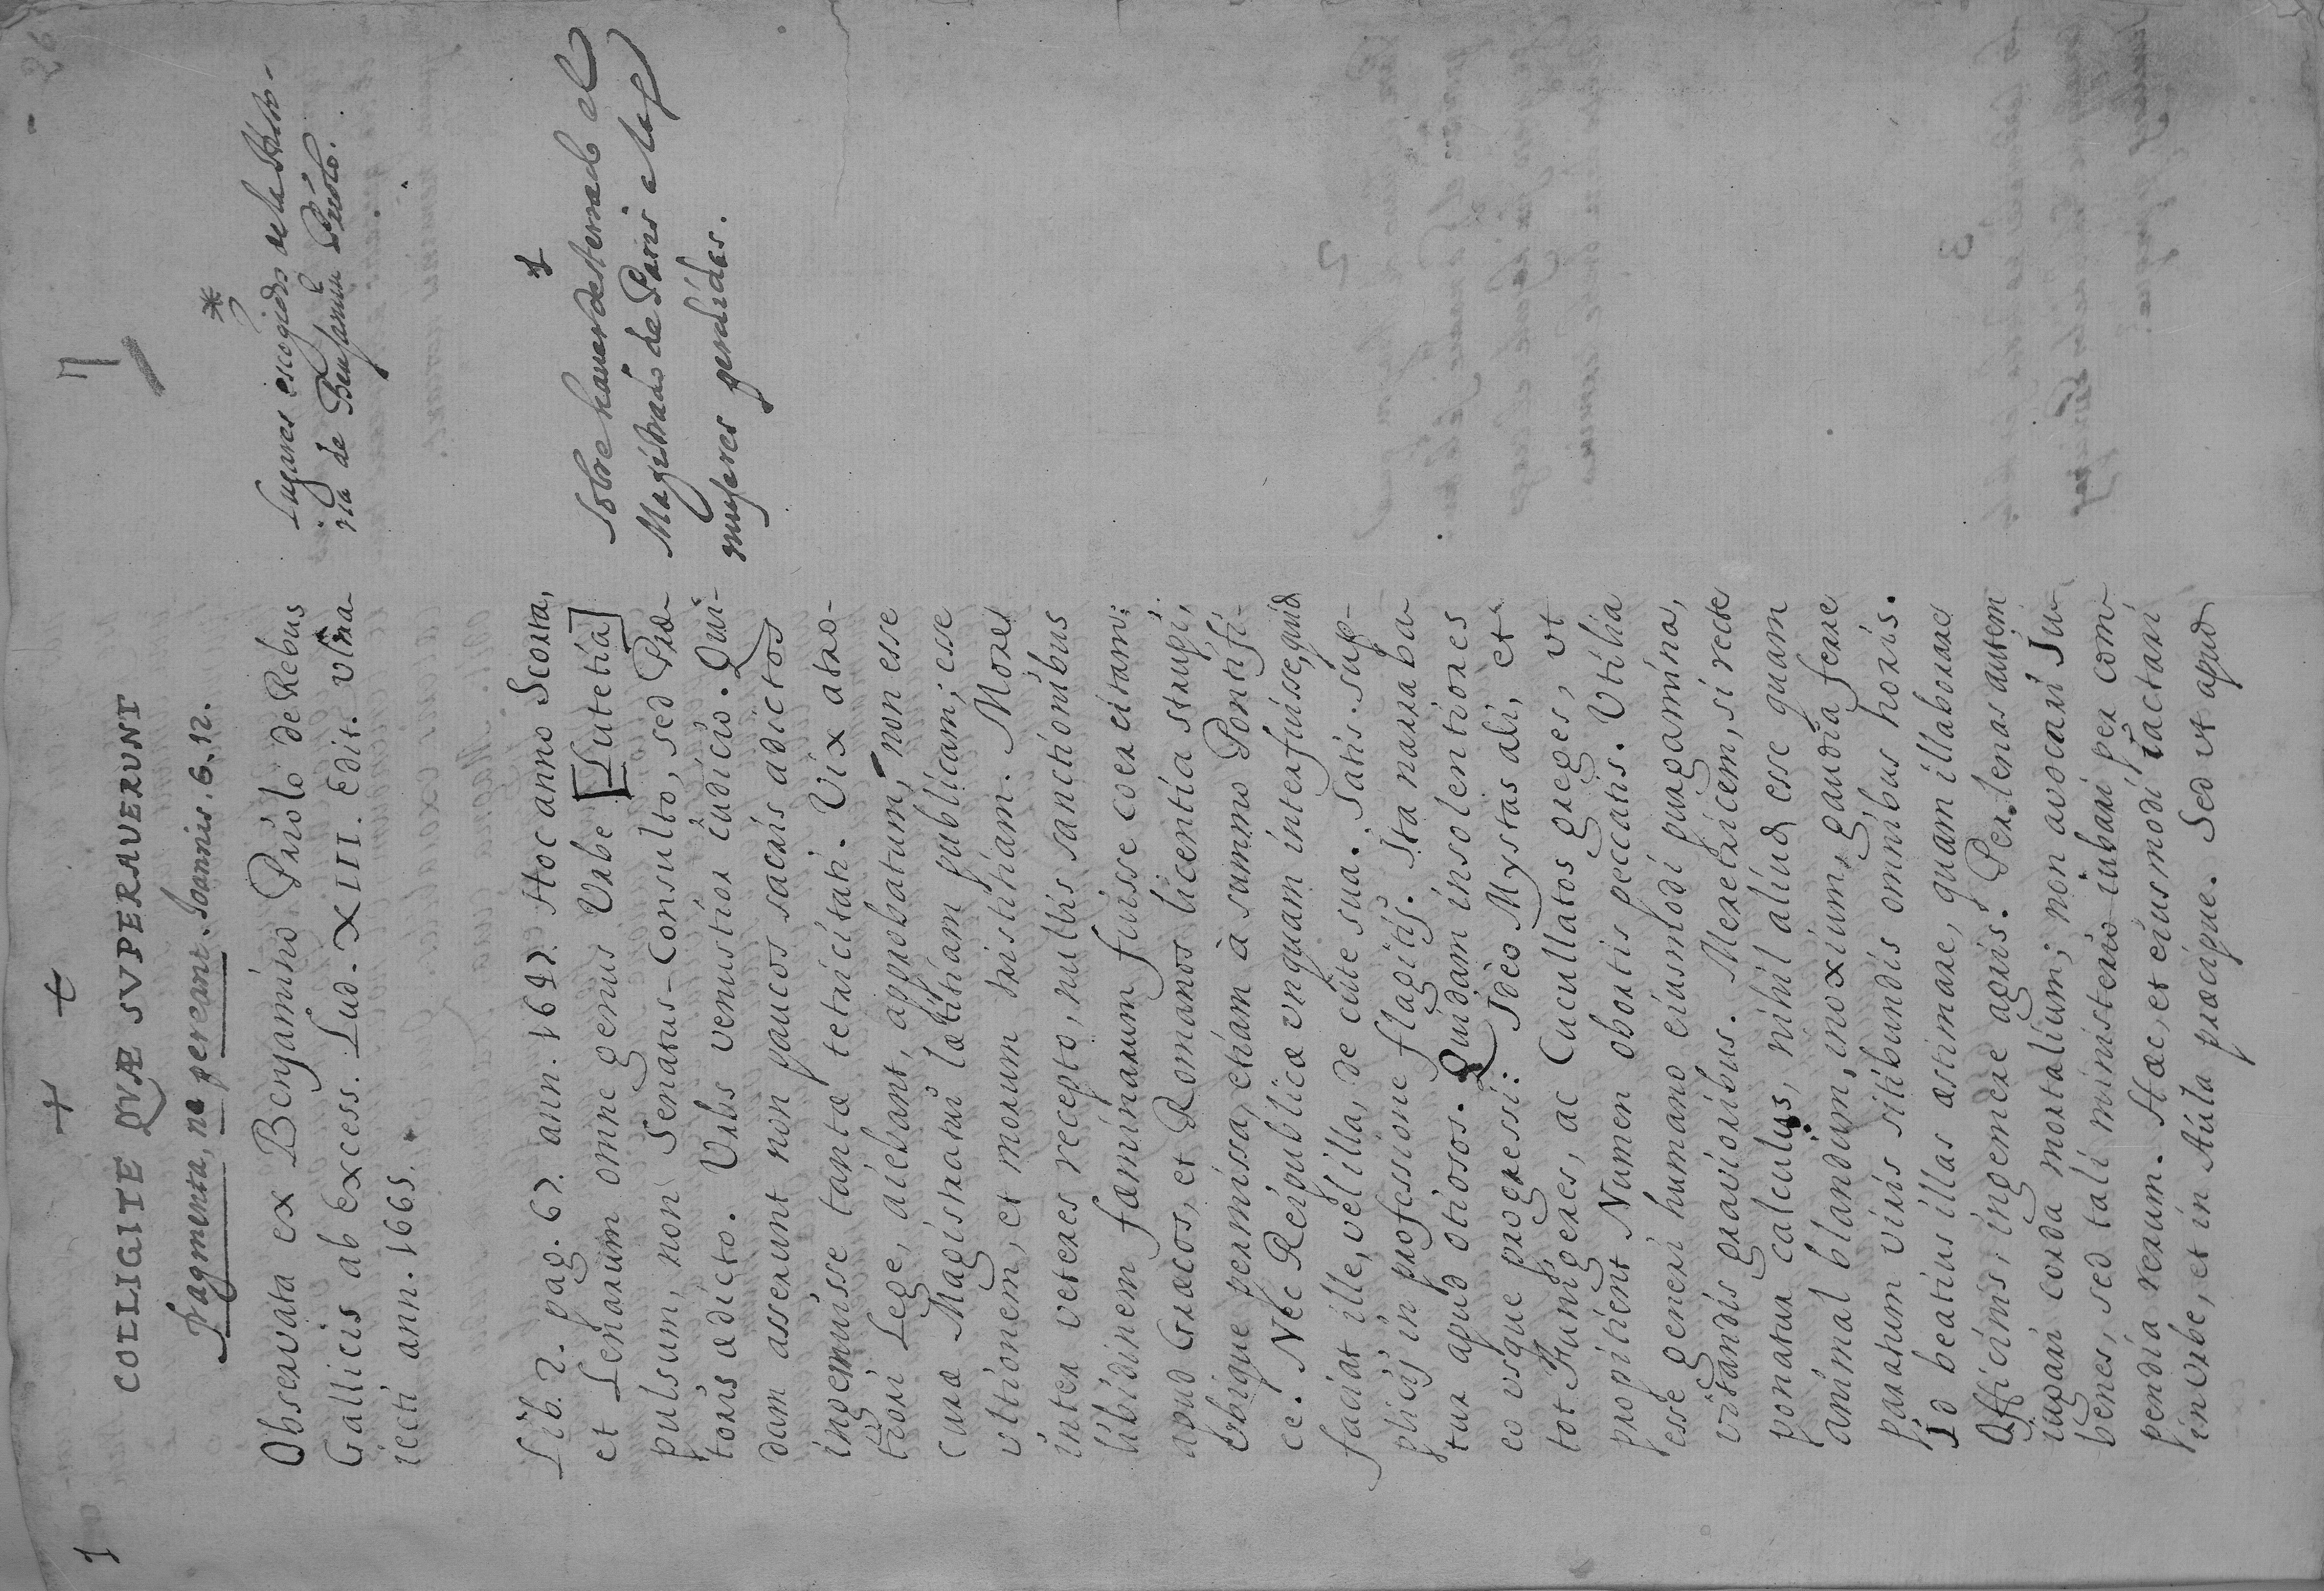 1 + + 7 26
COLLIGITE QVÆ SVPERAVERVNT
Fragmenta, ne pereant. Ioannis. 6. 12.
Observata ex Benjamino Priolo de Rebus
Gallicis ab Excess. Lud. XIII. Edit. vltra
iecti ann. 1665.
*
Lugares escogidos de la Histo-
ria de Benjamin Priolo.
Lib. 2. pag. 67. ann. 1647. Hoc anno Scorta,
et Lenarum omne genus Vrbe [Lutetia]
pulsum, non Senatus-Consulto, sed Præ-
toris ædicto. Vrbs venustior iudicio. Qui-
dam asserunt non paucos sacris adictos
ingemuisse tantæ tetricitati. Vix atro-
tiori Lege, aiebant, approbatum, non esse
curæ Magistratui lætitiam publicam; esse
vltionem, et morum tristitiam. Mores
inter veteres recepto, nullis sanctionibus
libidinem fæminarum fuisse coercitam;
apud Græcos, et Romanos licentia strupi,
vbique permissa, etiam à summo Pontifi-
ce. Nec Reipublicæ vnquam interfuisse, quid
faciat ille, vel illa, de cute sua. Satis sup-
plicij in professione flagitij. Ita narraba-
tur apud otiosos. Quidam insolentiores
eo vsque progressi: Ideo Mystas ali, et
tot Funigeres, ac Cucullatos greges, vt
propitient Numen obortis peccatis. Vtilia
esse generi humano eiusmodi purgamina,
vitandis gravioribus. Meretricem, si recte
ponatur calculus, nihil aliud esse quam
animal blandium, inoxium, gaudia ferre
paratum viris sitibundis omnibus horis.
Id beatius illas æstimare, quam illaborare
Officinis, ingemere agris. Per lenas autem
iugari corda mortalium; non avocari Iu-
benes, sed tali ministerio iubari per com-
pendia rerum. Hæc, et eiusmodi iactari
in vrbe, et in Aula præcipue. Sed vt apud
1
Sobre haver desterrado el
Magistrado de Paris a las
mugeres perdidas.